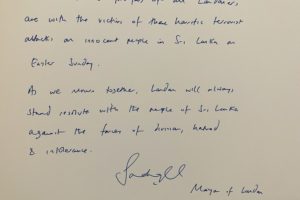 of all Londoners
are with the victims of these horrific terrorist
attacks on innocent people in Sri Lanka on
Easter Sunday.
As we mourn together, London will always
stand resolute with the people of Sri Lanka
against the forces of terrorism, hatred
& intolerance.
Mayor of London